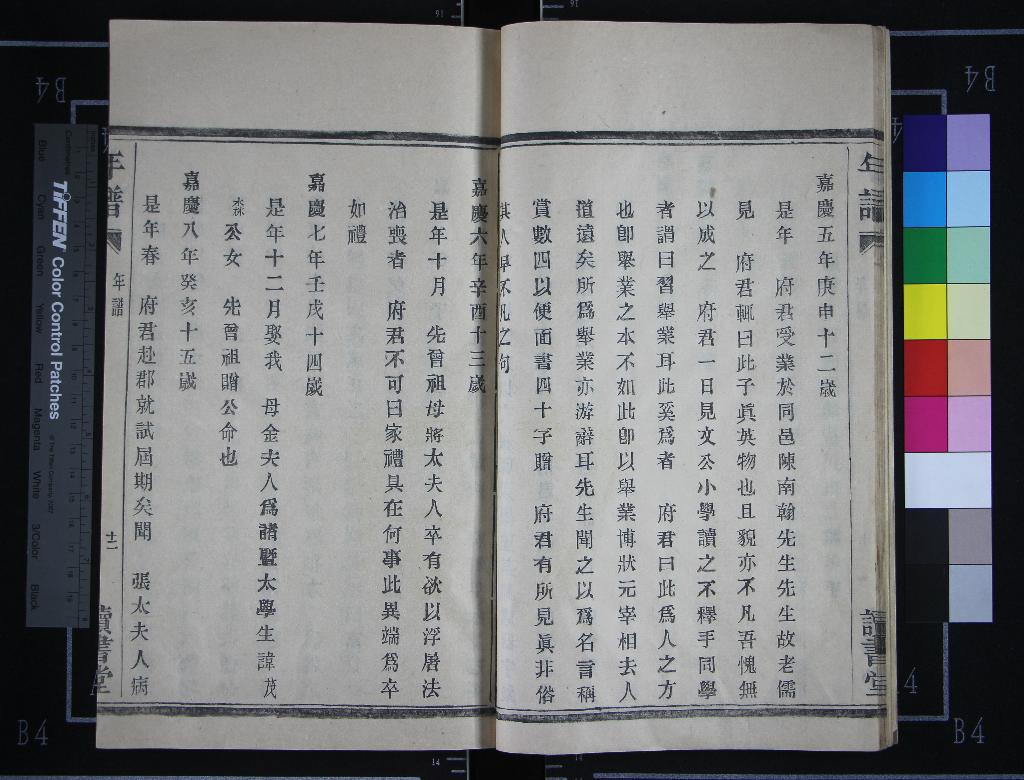 嘉慶五年庚申十二歲
是年　府君受業於同邑陳南翰先生先生故老儒
見　府君輒曰此子真英物也且貌亦不凡吾愧無
以成之　府君一日見文公小學讀之不釋手同學
者謂曰習舉業耳此奚爲者　府君曰此爲人之方
也卽舉業之本不如此卽以舉業博狀元宰相去人
道遠矣所爲舉業亦游辭耳先生聞之以爲名言稱
賞數四以便面書四十字贈　府君有所見真非俗
其人早不凡之句
嘉慶六年辛酉十三歲
是年十月　先曾祖母蔣太夫人卒有欲以浮屠法
治喪者　府君不可曰家禮具在何事此異端爲卒
如禮
嘉慶七年壬戌十四歲
是年十二月娶我　母金夫人爲諸暨太學生諱茂
森公女　先曾祖贈公命也
嘉慶八年癸亥十五歲
是年春　府君赴郡就試屆期矣聞　張太夫人病
年譜
讀書堂
年譜
年譜
十二
讀書堂
TIFFEN Color Control Patches
Blue
Cyan
Green
Yellow
Red
Magenta
White
3/Color
Black
B4
B4
B4
B4